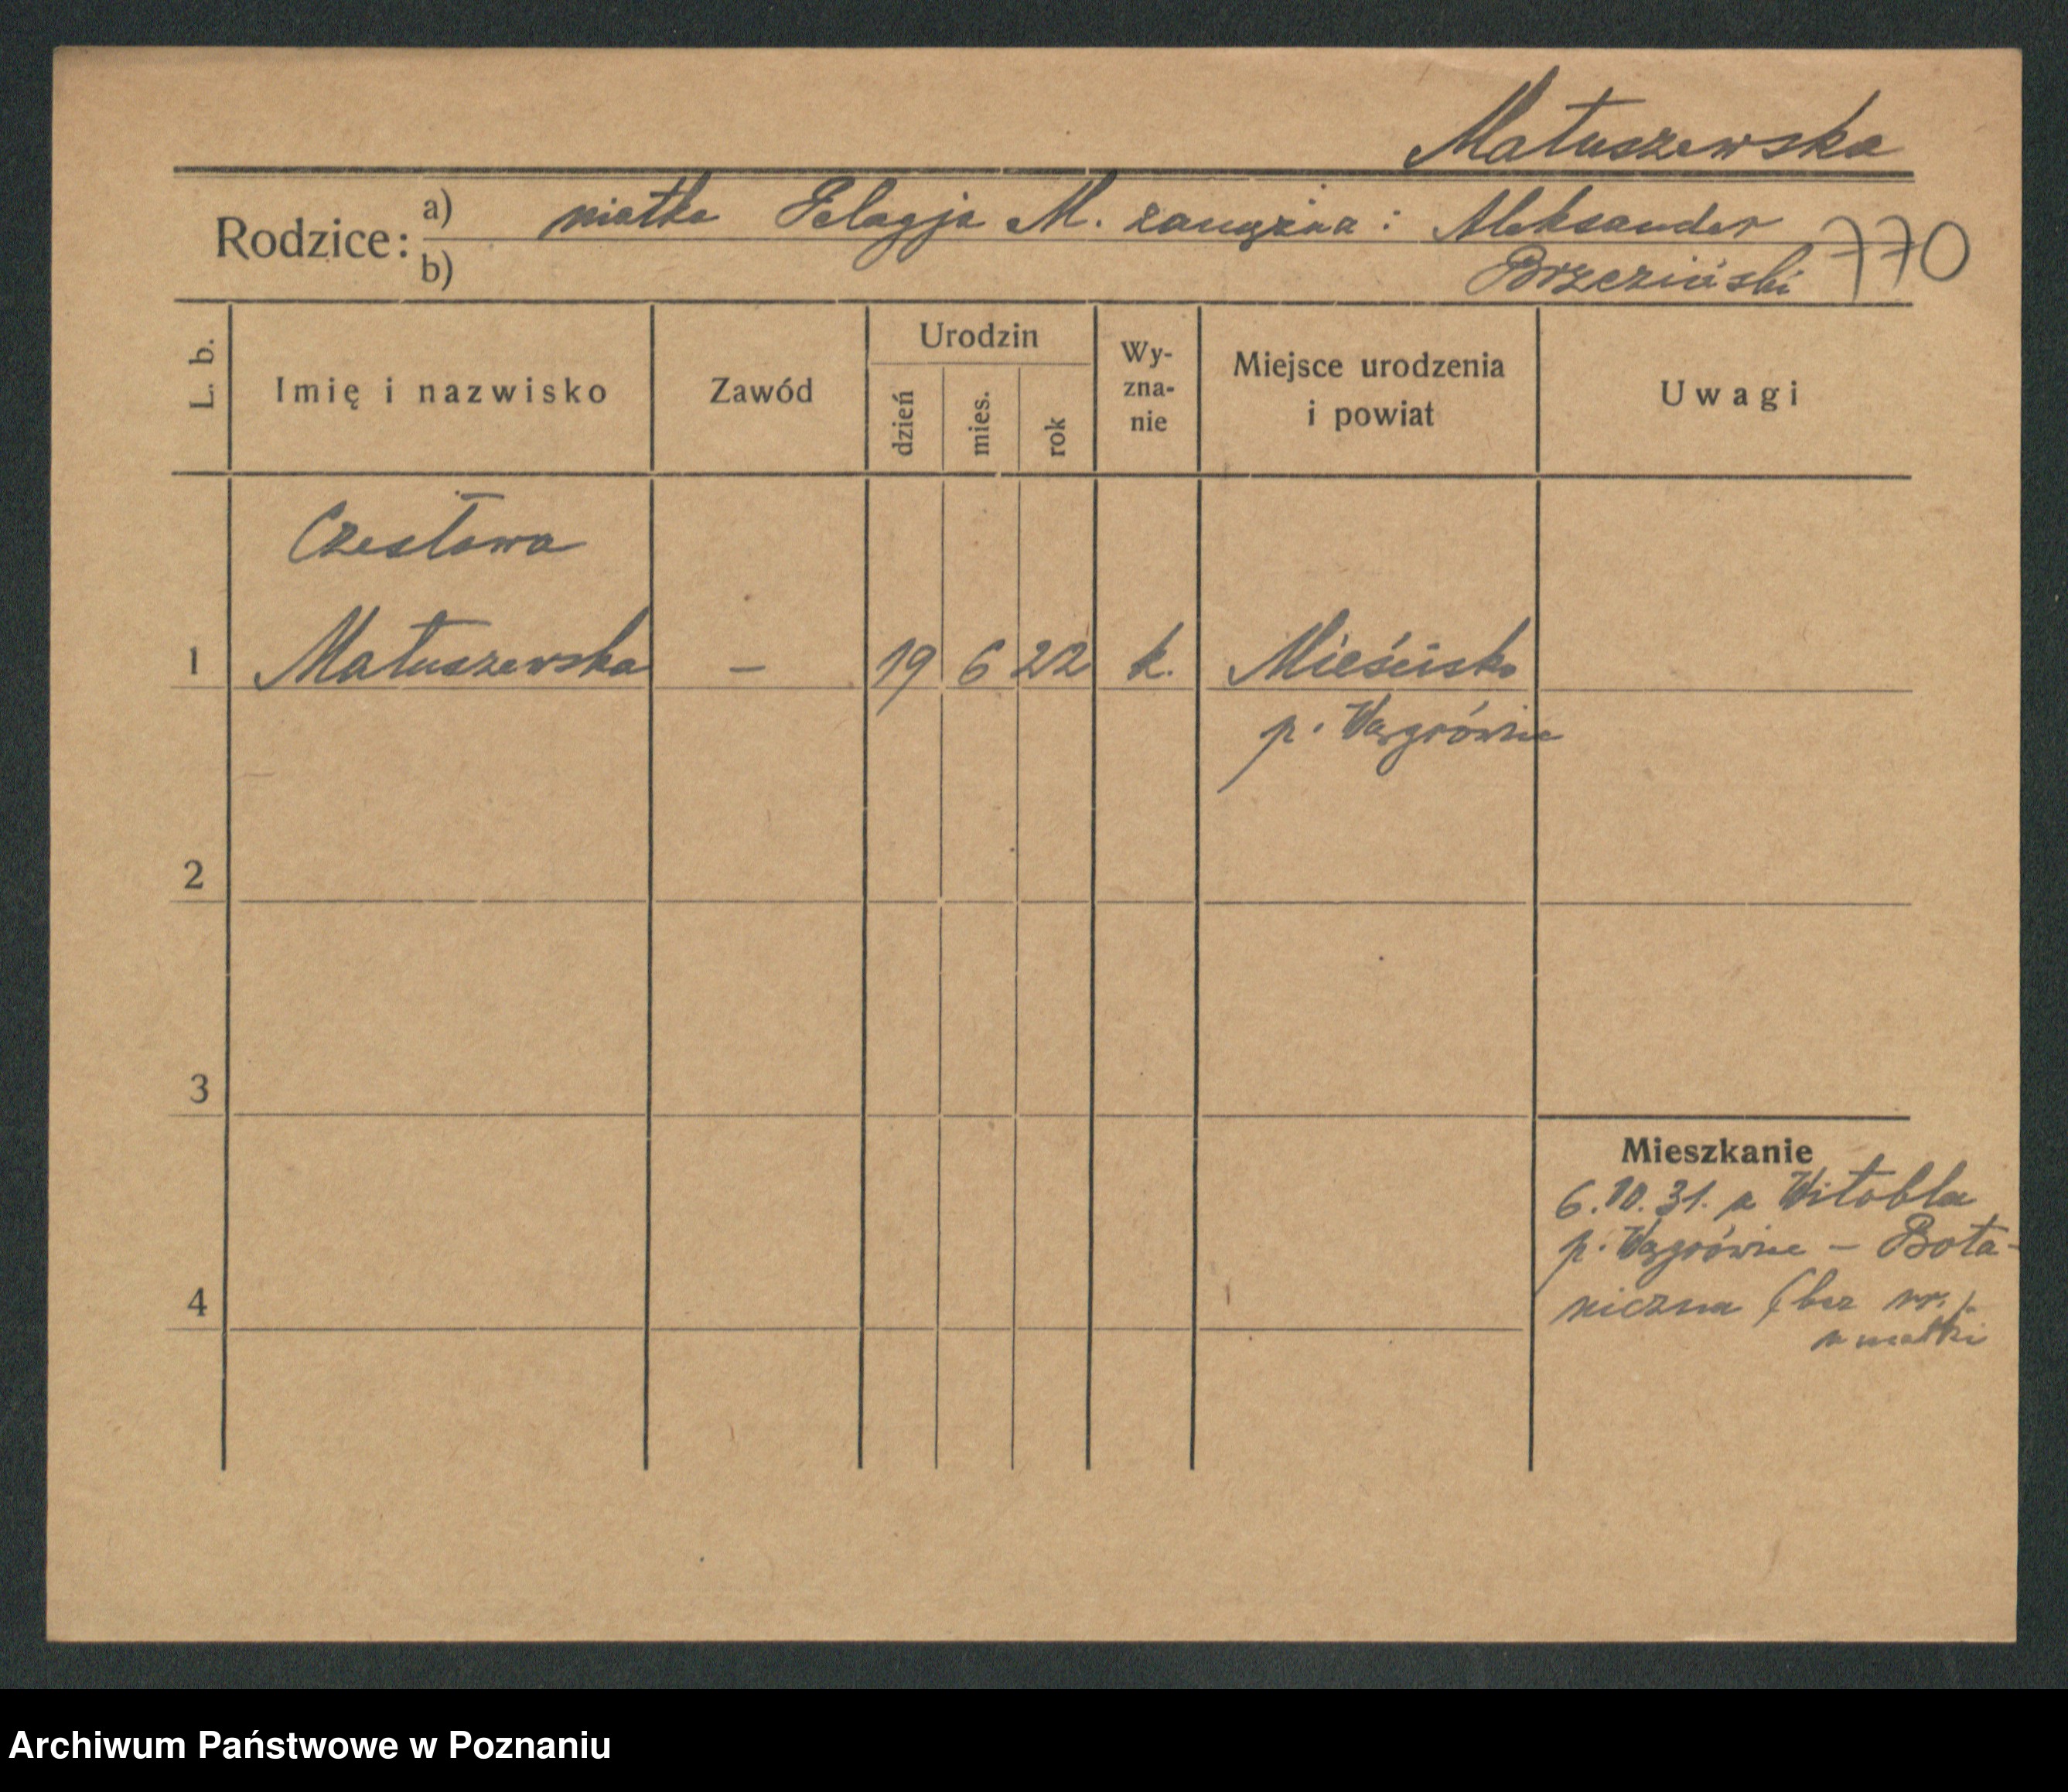 Matuszewska
Rodzice: a) matka Pelagja M. zamężna: Aleksander
b) Brzeziński 770
L. b. Imię i nazwisko Zawód Urodzin dzień mies. rok Wy-zna-nie Miejsce urodzenia i powiat Uwagi
Czesława
1 Matuszewska – 19 6 22 k. Mieścisko
p. Wągrówiec
2
3
Mieszkanie
6.10.31. z Witobla
p. Wągrówiec – Bota-
niczna (bez nr.)
4
u matki
Archiwum Państwowe w Poznaniu